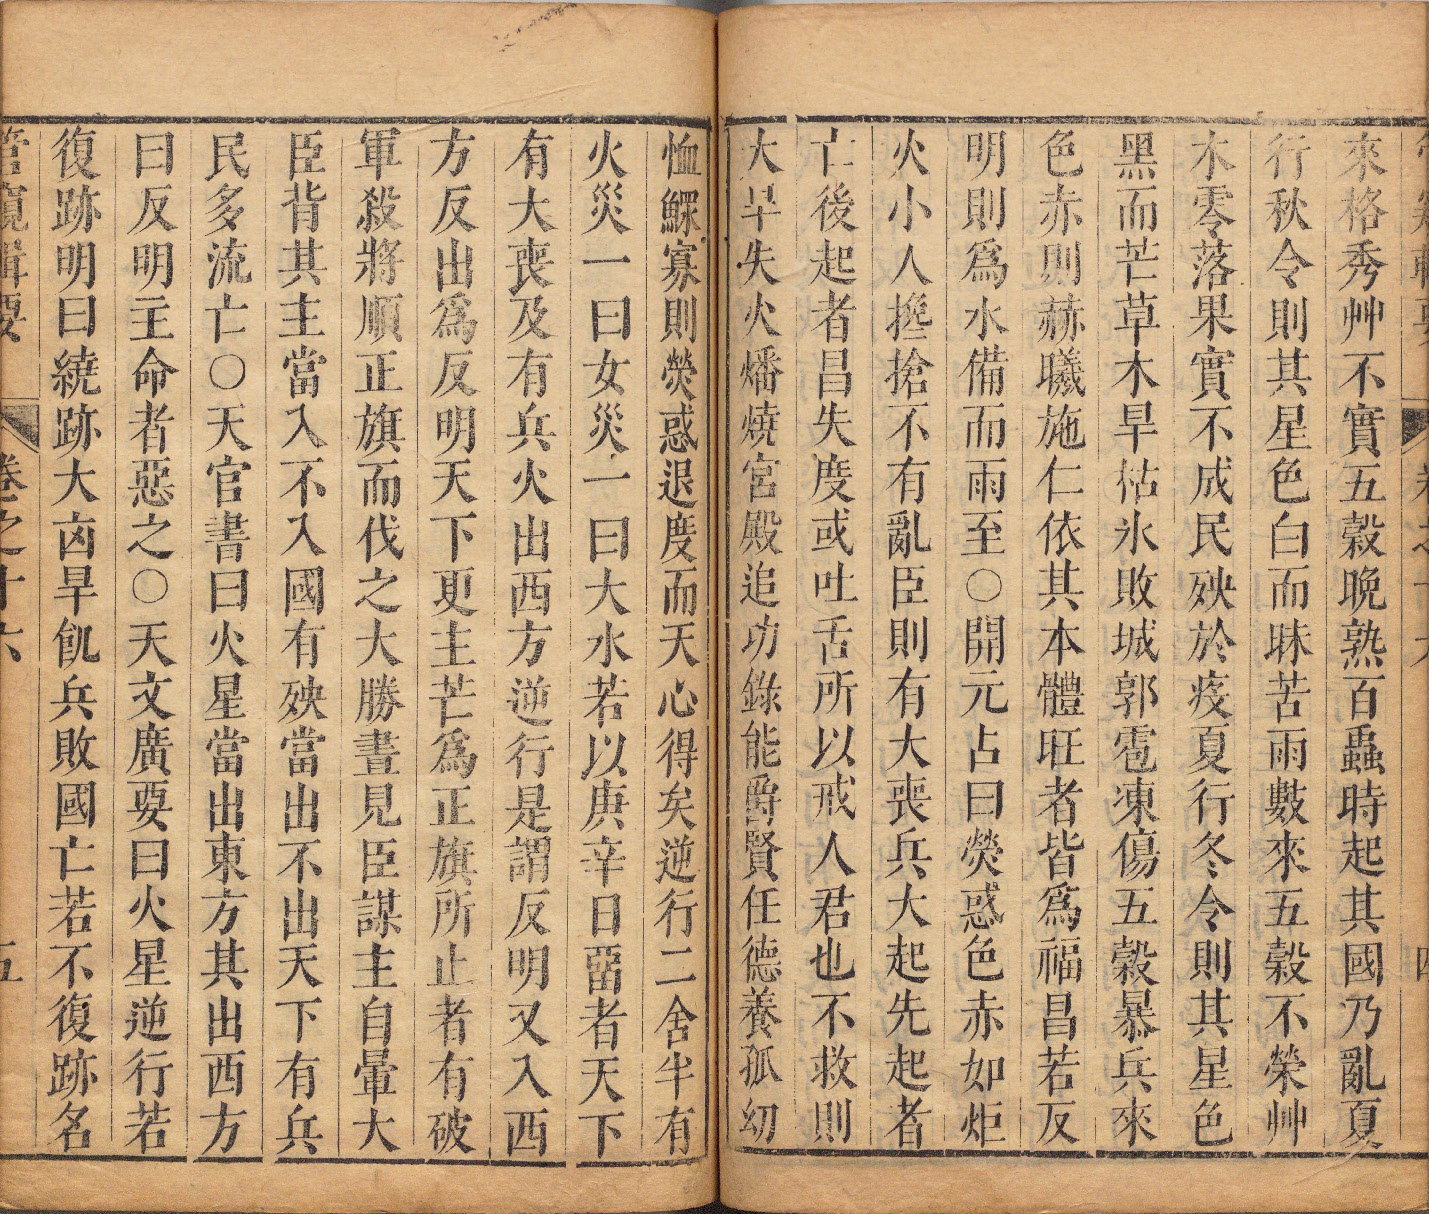 來格秀艸不實五穀晚熟百蟲時起其國乃亂夏
行秋令則其星色白而昧苦雨數來五穀不榮艸
木零落果實不成民殃於疫夏行冬令則其星色
黑而芒草木旱枯氷敗城郭雹凍傷五穀暴兵來
色赤則赫曦施仁依其本體旺者皆爲福昌若反
明則爲水備而雨至○開元占曰熒惑色赤如炬
火小人攙搶不有亂臣則有大喪兵大起先起者
亡後起者昌失度或吐舌所以戒人君也不救則
大旱失火燔燒宮殿追功錄能爵賢任德養孤幼
恤鰥寡則熒惑退度而天心得矣逆行二舍半有
火災一曰女災一曰大水若以庚辛日畱者天下
有大喪及有兵火出西方逆行是謂反明又入西
方反出爲反明天下更主芒爲正旗所止者有破
軍殺將順正旗而伐之大勝晝見臣謀主自暈大
臣背其主當入不入國有殃當出不出天下有兵
民多流亡○天官書曰火星當出東方其出西方
曰反明主命者惡之○天文廣要曰火星逆行若
復跡明曰繞跡大凶旱飢兵敗國亡若不復跡名
管窺輯要
卷之十六
五